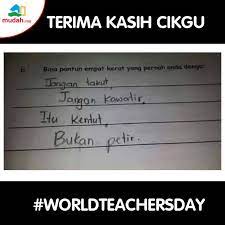 mudah.my
TERIMA KASIH CIKGU
Bina pantun empat kerat yang pernah anda dengar
Jangan takut,
Jangan Kawatir,
Itu Kentut,
Bukan petir.
#WORLDTEACHERSDAY